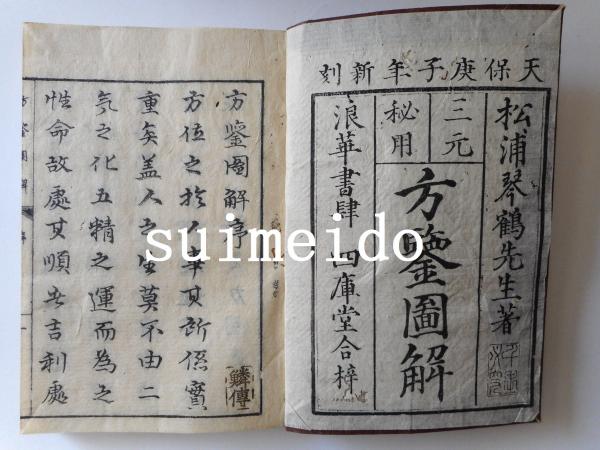 天保庚子年新刻
松浦琴鶴先生著
三元
秘用
方鑒圖解
浪華書肆 四庫堂合梓
方鑒圖解序
方位之於人事其所係實
重矣蓋人之生莫不由二
气之化五精之運而為之
性命故處其順者吉利處
鱗傳
方鑒圖解
suimeido